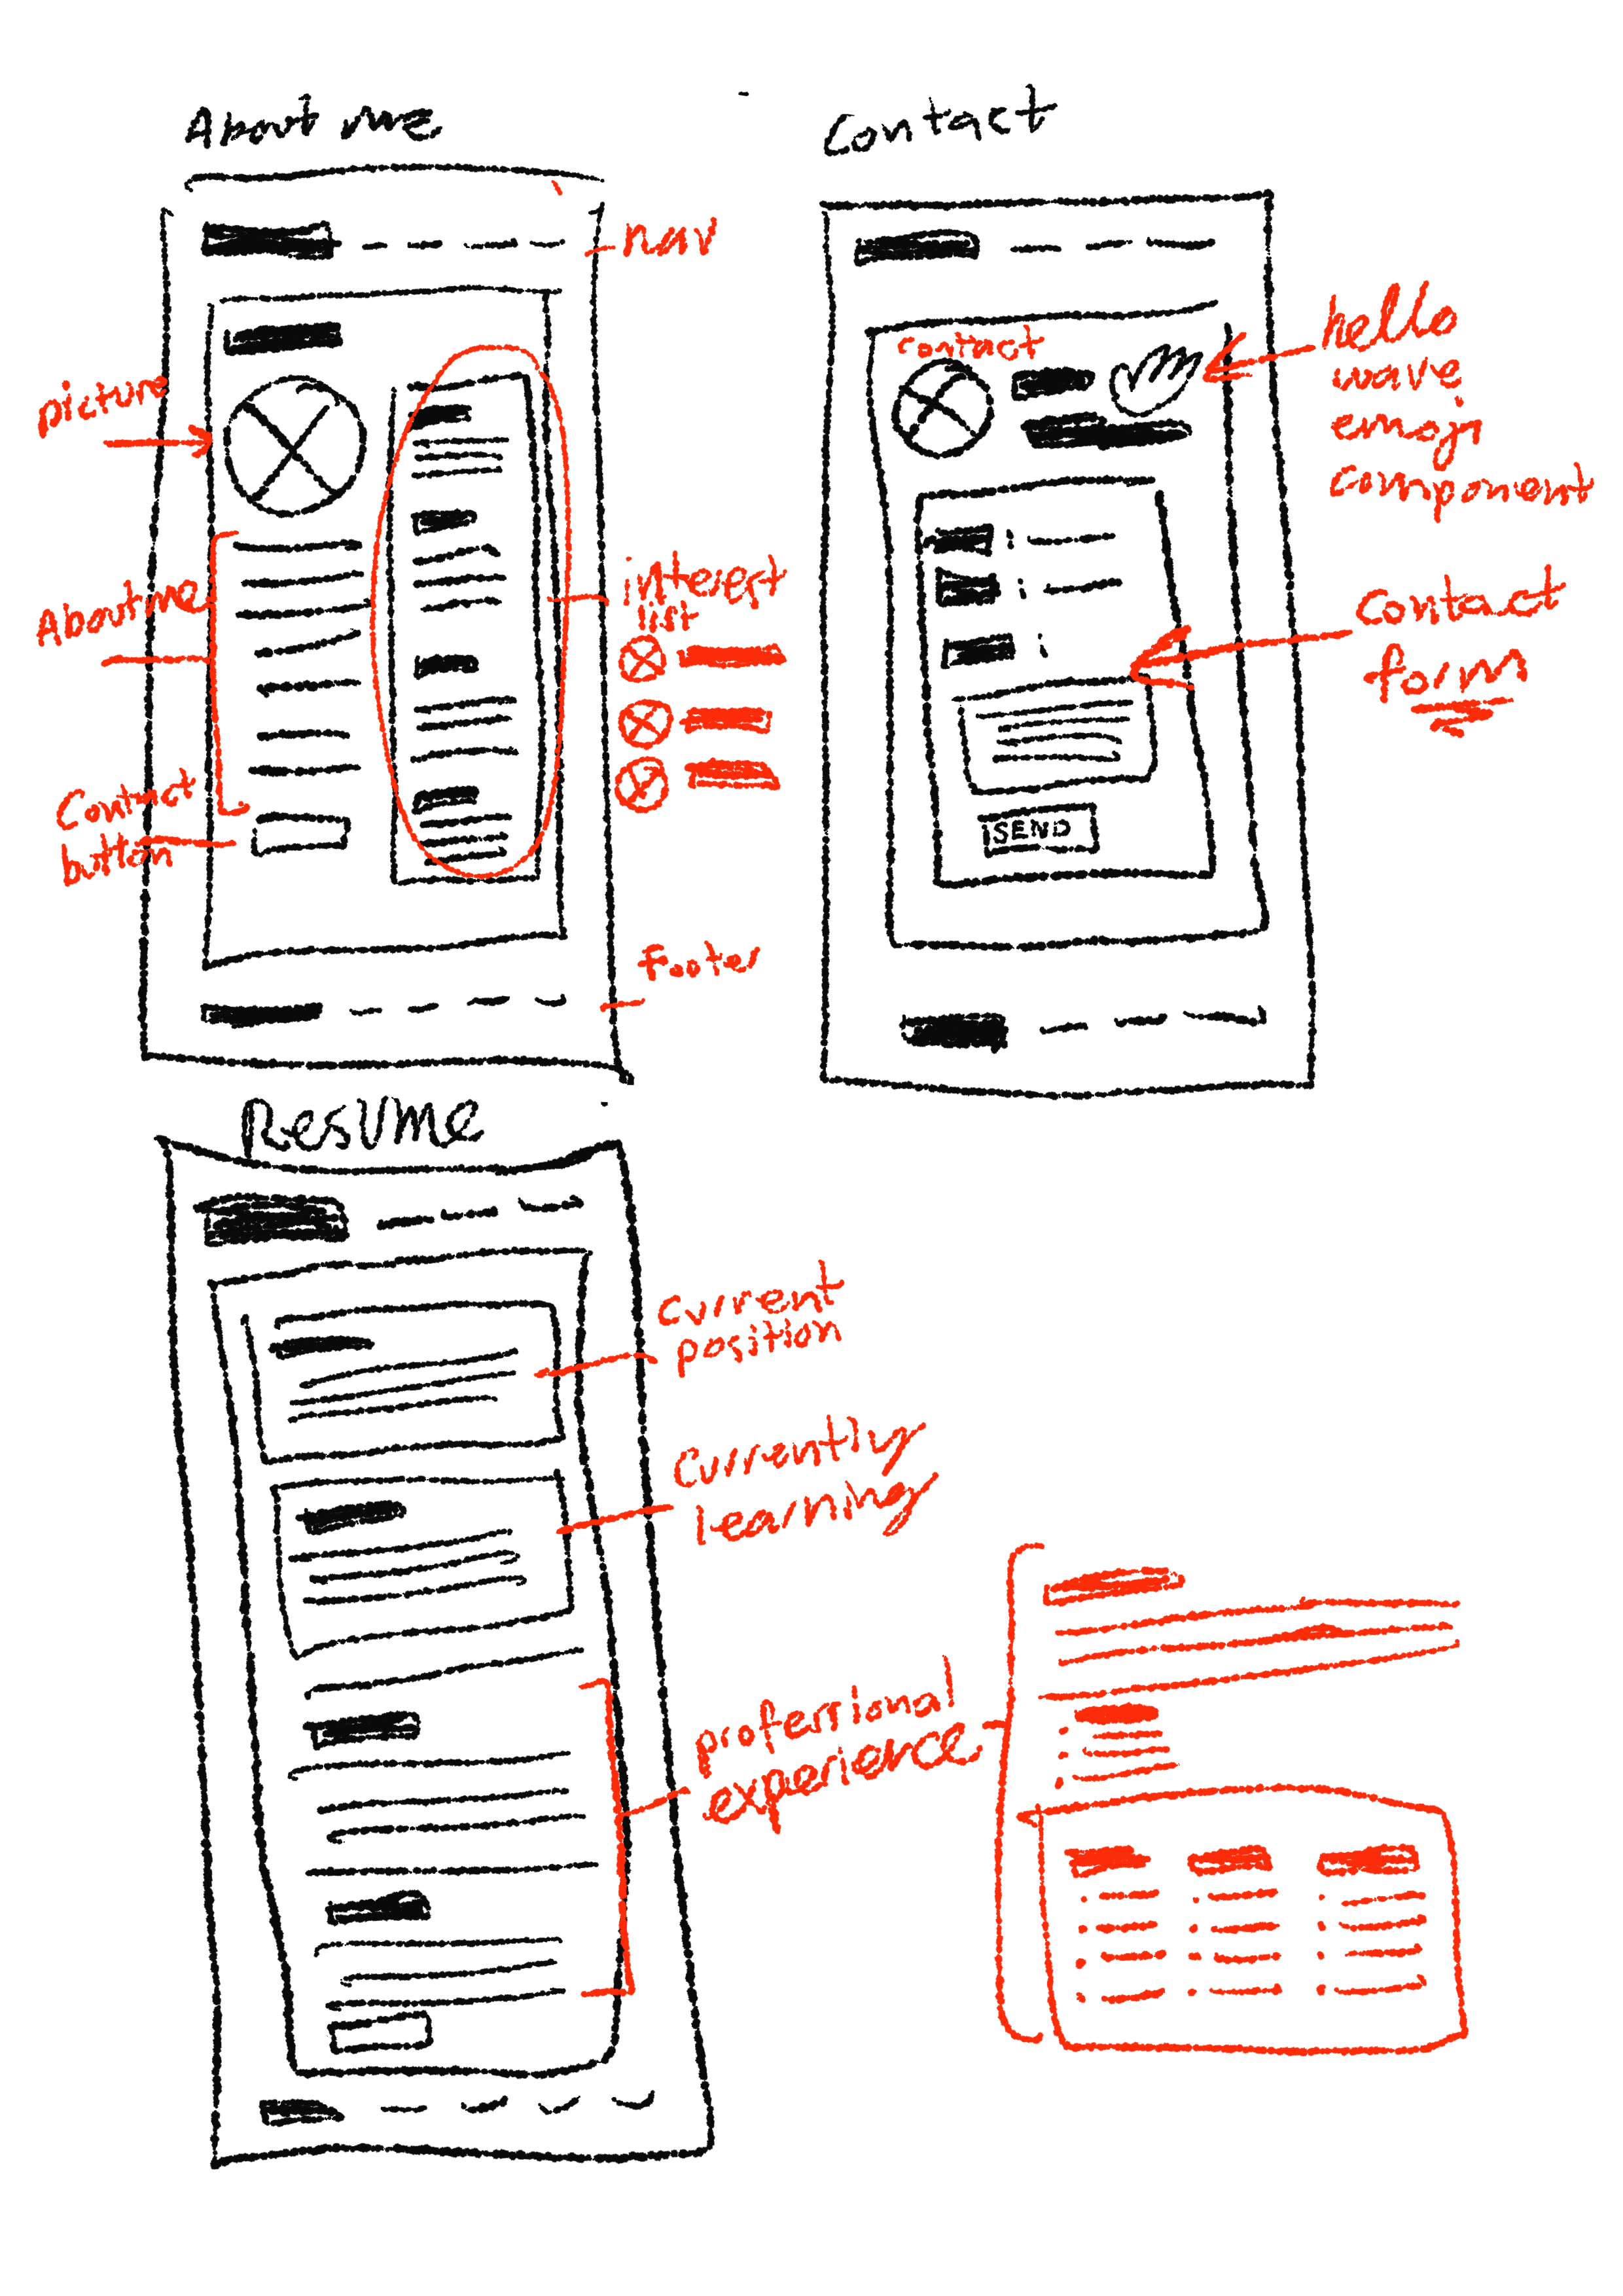 About me
nav
picture
About me
Contact
button
interest
list
Footer
Contact
contact
hello
wave
emoji
component
contact
form
SEND
Resume
current
position
Currently
learning
professional
experience